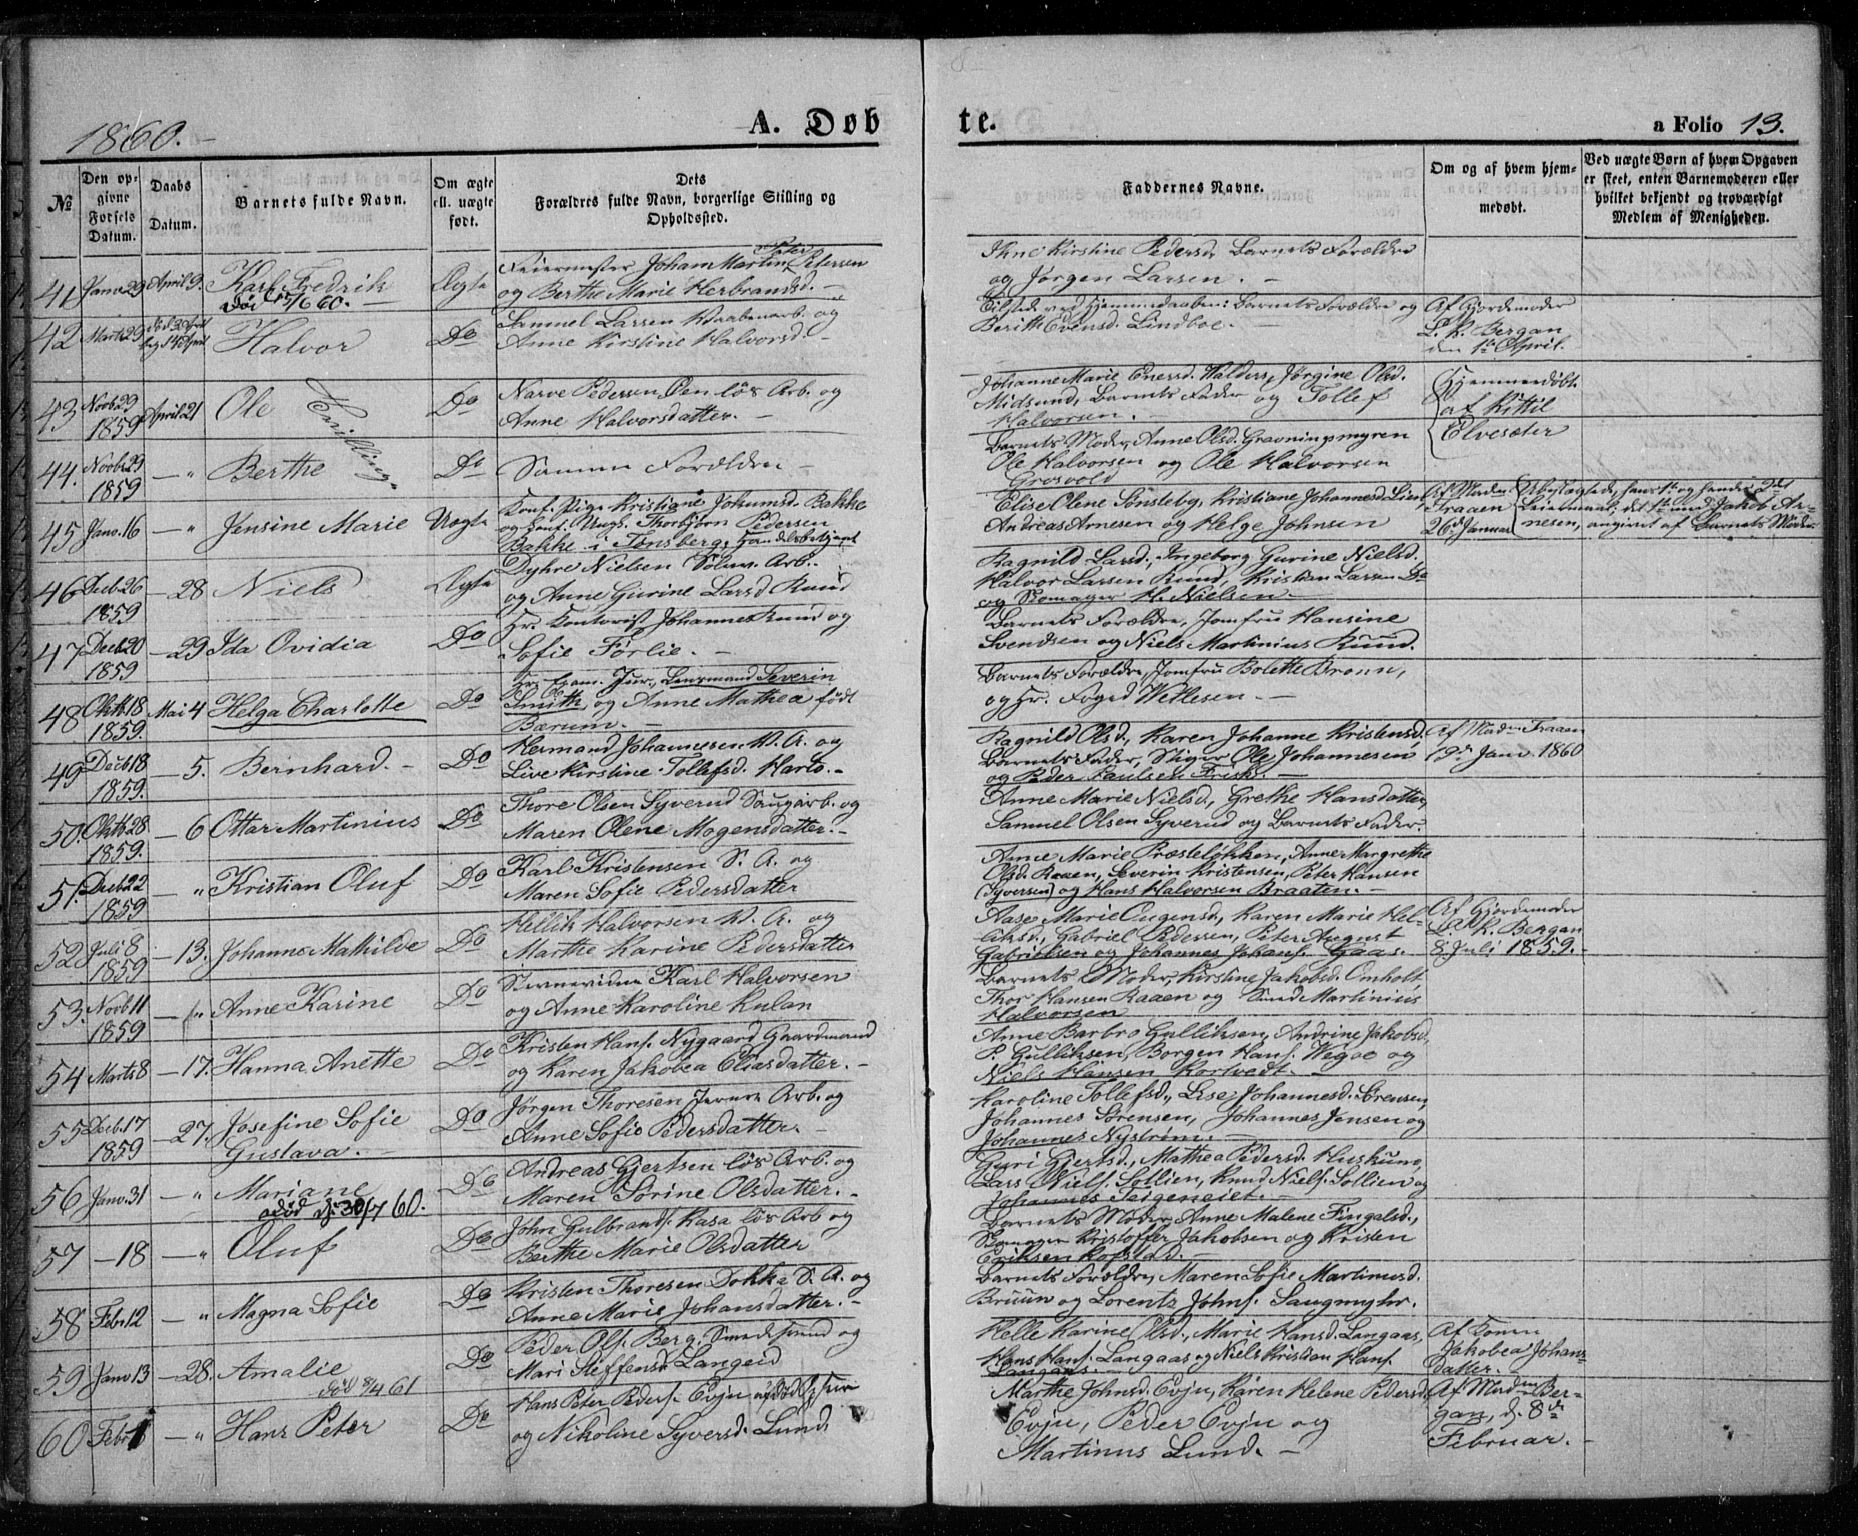 1860.
A. Döb
te.
a Folio 13.
№
Den op-
givne
Fødsels
Datum.
Daabs
Datum.
Barnets fulde Navn.
Om ægte
ell. uægte
født.
Dets
Forældres fulde Navn, borgerlige Stilling og
Opholdssted.
Faddernes Navne.
Om og af hvem hjem-
medøbt.
Ved uægte Børn af hvem Opgaven
er skeet, enten Barnemoderen eller
hvilket bekjendt og troværdigt
Medlem af Menigheden.
41 Janv. 29 April 9. Karl Fredrik Ægte Feiermester Johan Martin Peter Petersen
Død 15/6 60. og Berthe Marie Herbrandsd.
Kirstine Pedersd., Barnets Forældre
og Jørgen Larsen.
42 Marts 29 April Halvor Do Samuel Larsen Vaabenarb. og
Anne Kirstine Halvorsd.
Tilstede ved Hjemmedaaben: Barnets Forældre og
Berith Evensd. Lindboe.
Af Gjordemoder
L. K. Bergan
den 1te April.
43 Novb. 29 1859 April 21 Ole Tvillinger Do Narve Pedersen løs Arb. og
Anne Halvorsdatter.
Johanne Marie Enersd. Valders, Jørgine Olsd.
Midsund, Barnets Fader og Tollef
Halvorsen.
Hjemmedøbt
af Kittil
Elvesæter
44. Novb. 29 1859 — " Berthe Do Samme Forældre
Barnets Moder, Anne Olsd. Gravningsmyren
Ole Halvorsen og Ole Halvorsen
Grosvold
45 Janv. 16 — " Jensine Marie Uægte Konf. Pige Kristiane Johannesd. Bakke
og Konf. Ungk. Thorbjørn Pedersen
Bakke i Tønsberg, Handelsbetjent
Elise Olene Sønsteby, Kristiane Johannesd. Lien
Andreas Arnesen og Helge Johnsen
Af Madm.
Fraaen
26de Januar
hans 1te og hendes 2det
Leiermaal; det 1te med Jakob Ar-
nesen, angivet af Barnets Moder
46 Decb. 26 1859 — 28 Niels Ægte Dyhre Nielsen Sølvv. Arb.
og Anne Gurine Larsd. Ruud
Ragnild Larsd., Ingeborg Gurine Nielsd.
Halvor Larsen Ruud, Kristian Larsen Do
og Skomager H. Nielsen
47 Decb. 20 1859 — 29 Ida Ovidia Do Hr. Kontorist Johannes Ruud og
Sofie Førlie.
Barnets Forældre, Jomfru Hansine
Svendsen og Niels Martinius Ruud.
48 Oktb. 18 1859. Mai 4 Helga Charlotte Do Hr. Exam. Jur., Lensmand Severin
Smith og Anne Mathea født
Bærum.
Barnets Forældre, Jomfru Bolette Bronn,
og Hr. Foged Wellesen
49 Decb. 18 1859. — 5. Bernhard. Do Hermand Johannesen V. A. og
Live Kirstine Tollefsd. Harto.
Ragnild Olsd., Karen Johanne Kristensd.
Barnets Fader, Stiger Ole Johannesen
og Peder Paulsen Frisk.
Af Madm Fraaen
19de Janv. 1860
50. Oktb. 28 1859. — 6 Ottar Martinius Do Thore Olsen Syverud Saugarb. og
Maren Olene Mogensdatter.
Anne Marie Nielsd., Grethe Hansdatter,
Samuel Olsen Syverud og Barnets Fader.
51. Decb. 22 1859 — " Kristian Oluf Do Karl Kristensen S. A. og
Maren Sofie Pedersdatter
Anne Marie Præsteløkken, Anne Margrethe
Olsd. Raaen, Severin Kristensen, Peter Hansen
(Syversen) og Hans Halvorsen Braaten.
52 Juli 8 1859 — 13. Johanne Mathilde Do Hellik Halvorsen V. A. og
Marthe Karine Pedersdatter
Aase Marie Eugensd., Karen Marie Hel-
liksd., Gabriel Pedersen, Peter August
Gabrielsen og Johannes Johans. Gaas.
Af Gjordemoder
L. K. Bergan
8. Juli 1859.
53. Novb. 11 1859 — " Anne Karine Do Karl Halvorsen
og Anne Karoline Kulan
Barnets Moder, Kirstine Jakobsd. Omholt,
Thor Hansen Raaen og Martinius
Halvorsen
54 Marts 8 — 17. Hanna Anette Do Kristen Hans. Nygaard Gaardmand
og Karen Jakobea Eliasdatter.
Anne Barbro Gulliksen, Andrine Jakobsd.
P. Gulliksen, Borgen Hans. Wegoe og
Niels Hansen Kortvedt.
55 Decb. 17 1859 — 27. Josefine Sofie Do Jørgen Thoresen Jernv. Arb. og
Gustava. Anne Sofie Pedersdatter.
Karoline Tollefsd., Lise Johannesd. Sørensen,
Johannes Sørensen, Johannes Jensen og
Johannes Nystrøm.
56 Janv. 31 — " Mariane Do Andreas Gjertsen løs Arb. og
død d. 30/7 60. Maren Sørine Olsdatter.
Guri Gjertsd., Mathea Pedersd. Huskuno,
Lars Niels. Sollien, Knud Niels. Sollien og
Johannes Teigeneiet.
57 — 18 — " Oluf Do John Gulbrands. Kasa løs Arb og
Berthe Marie Olsdatter
Barnets Moder, Anne Malene Fingalsd.,
Skomager Kristoffer Jakobsen og Kristen
Eriksen Kofstad.
58 Febr. 12 — " Magna Sofie Do Kristen Thoresen Dokka S. A. og
Anne Marie Johansdatter.
Barnets Forældre, Maren Sofie Martinusd.
Bruun og Lorents Johns. Saugmyhr.
59 Janv 13 — 28. Amalie Do Peder Ols. Berg, Smedsvend og
Død 8/4 61 Mari Steffensd. Langeid
Helle Karine Olsd., Marie Hansd. Langaas,
Hans Hans. Langaas og Niels Kristian Hans.
Langaas.
Af Konen
Jakobea Johans-
datter.
60 Febr 1 — " Hans Peter Do Hans Peter Peders. Evju
og Nikoline Syversd. Lund
Marthe Johnsd. Evju, Karen Helene Pedersd.
Evju, Peder Evju og
Martinus Lund.
Af Madm Ber-
gan, d. 8de
Februar.